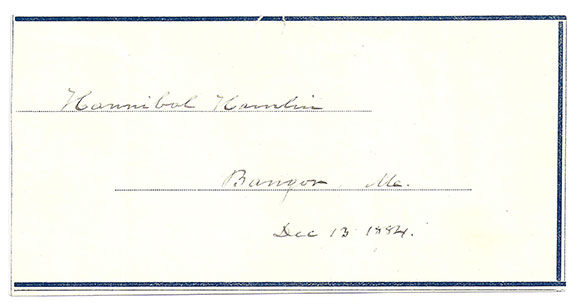 Hannibal Hamlin
Bangor, Me.
Dec 13 1884.